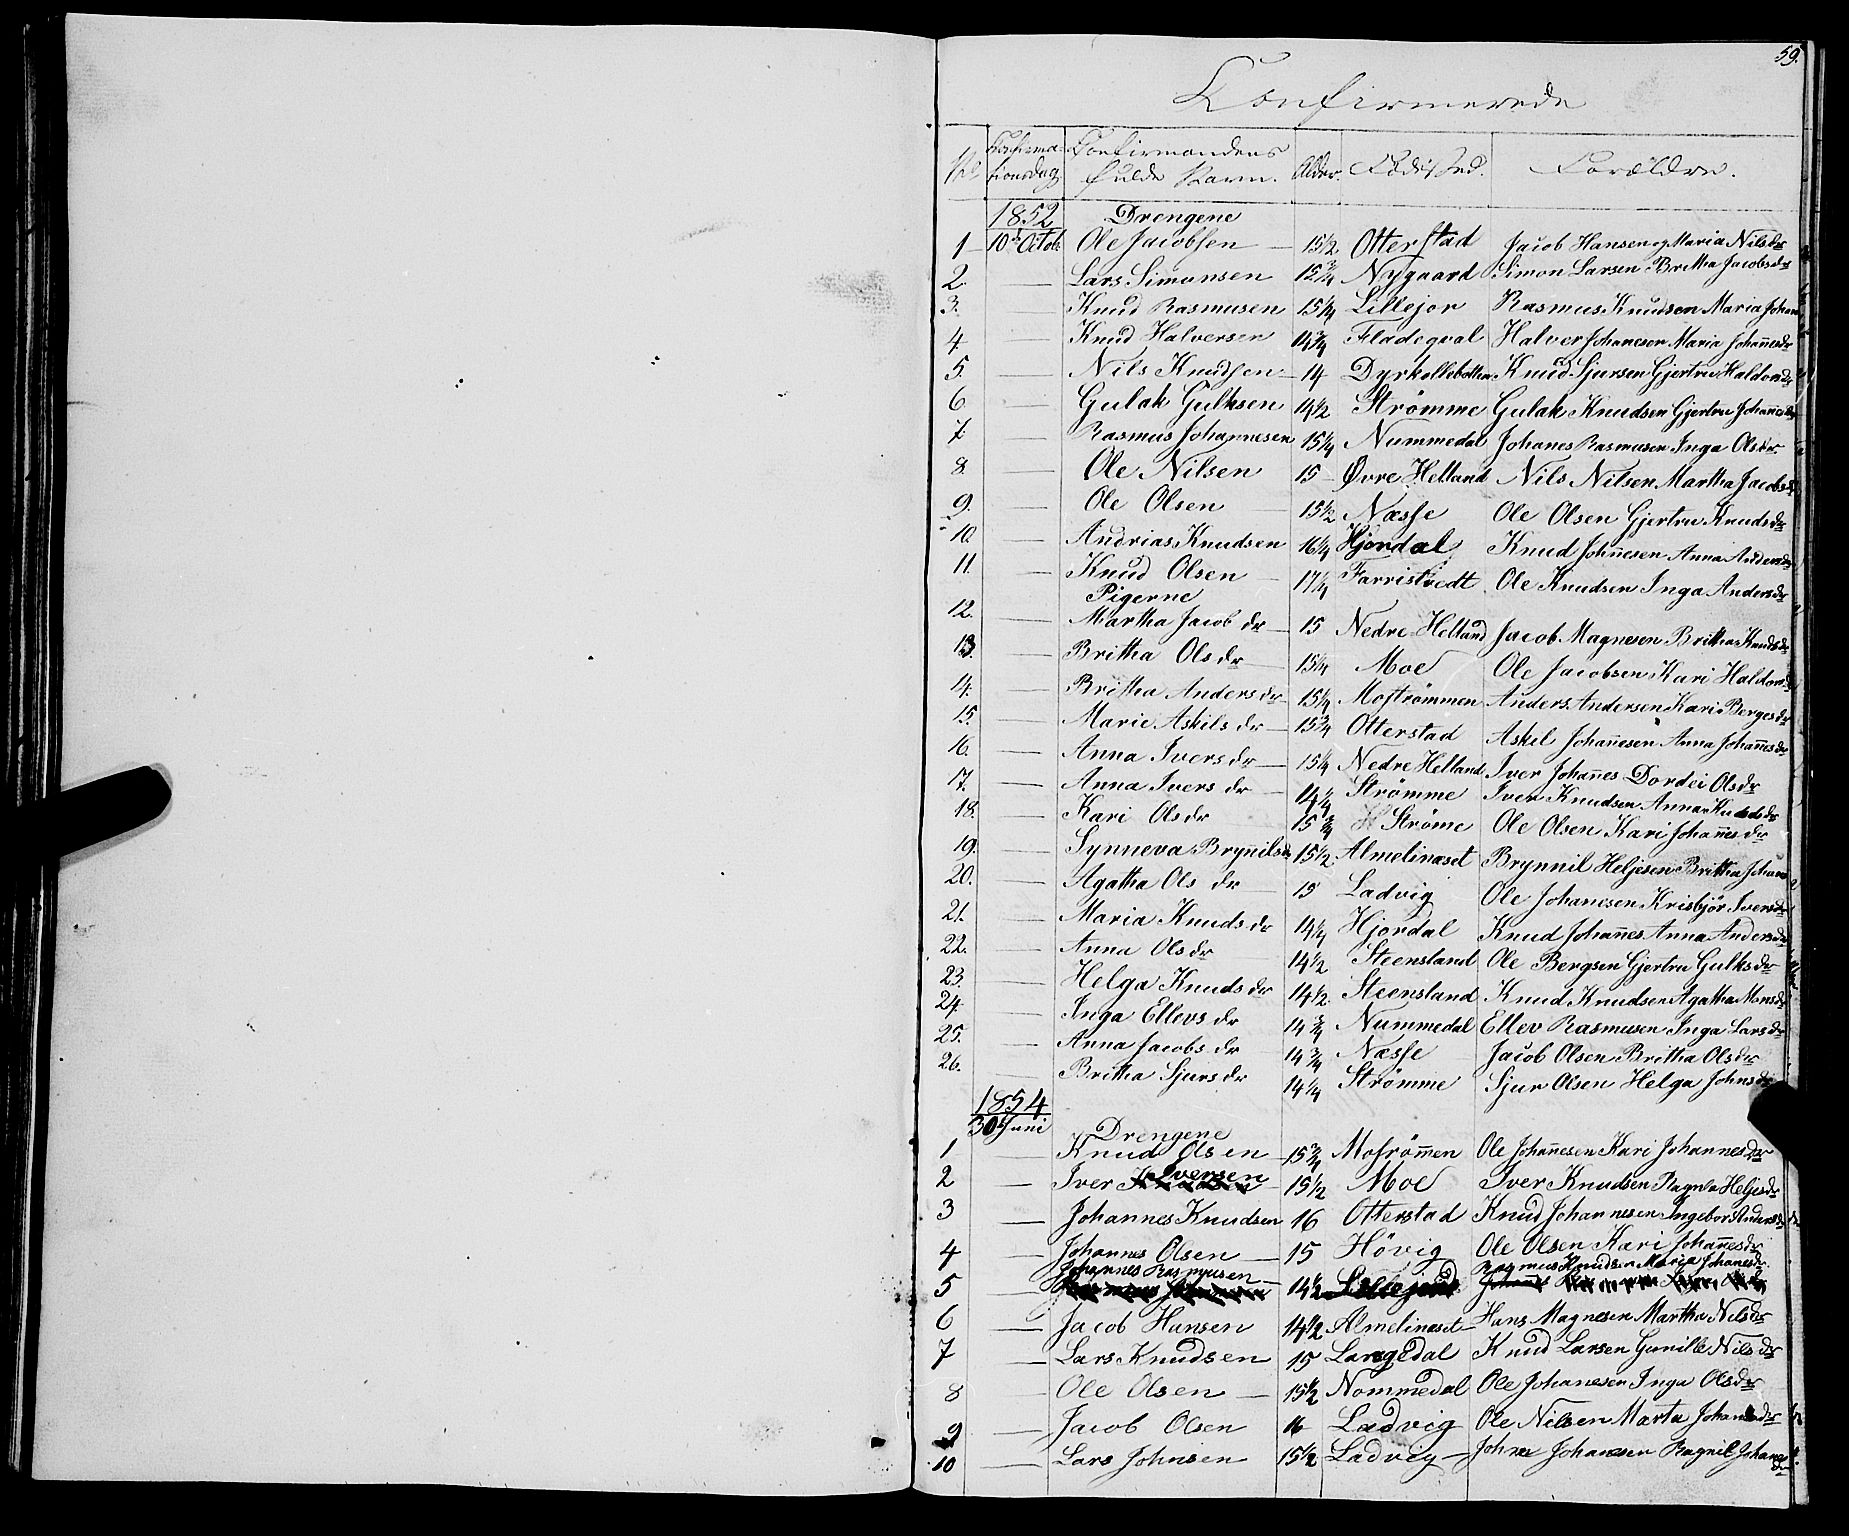 59.
Confirmerede
No Confirma- Confirmandens Alder. Födested. Forældre.
tionsdag fulde Navn.
1852 Drengene
1 10de Octob. Ole Jacobsen 15 1/2 Otterstad Jacob Hansen og Maria Nilsdr
2. Lars Simonsen 15 3/4 Nygaard Simon Larsen Britha Jacobsdr
3. Knud Rasmusen 15 1/4 Lillejor Rasmus Knudsen Maria Johan
4. Knud Halversen 14 3/4 Fladeqval Halver Johanesen Maria Johanesdr
5. Nils Knudsen 14 Dyrkollebotten Knud Sjursen Gjertru Haldorsdr
6. Gulak Gulksen 14 1/2 Strömme Gulak Knudsen Gjertru Johanesdr
7. Rasmus Johannesen 15 1/4 Nummedal Johanes Rasmusen Inga Olsdr
8. Ole Nilsen 15 Øvre Helland Nils Nilsen Martha Jacobsdr
9. Ole Olsen 15 1/2 Næsse Ole Olsen Gjertru Knudsdr
10. Andrias Knudsen 16 1/4 Hjordal Knud Johnesen Anna Andersdr
11. Knud Olsen 17 1/4 Farristvedt Ole Knudsen Inga Andersdr
Pigerne
12. Martha Jacob dr 15 Nedre Helland Jacob Magnesen Britha Knudsdr
13. Britha Olsdr 15 1/4 Moe Ole Jacobsen Kari Haldorsdr
14. Britha Anders dr 15 1/4 Moströmmen Anders Andersen Kari Bergesdr
15. Marie Askils dr 15 3/4 Otterstad Askel Johanesen Anna Johannesdr
16. Anna Ivers dr 15 1/4 Nedre Helland Iver Johannes Dordei Olsdr
17. Anna Ivers dr 14 1/4 Strömme Iver Knudsen Anna Knudsdr
18. Kari Olsdr 15 3/4 Ströme Ole Olsen Kari Johannesdr
19. Synneva Brynilsdr 15 1/2 Almelinæset Brynnil Heljesen Britha Johan
20. Agatha Ols dr 15 Ladvig Ole Johanesen Krisbjör Iversdr
21. Maria Knuds dr 14 1/4 Hjordal Knud Johannes Anna Andersdr
22. Anna Olsdr 14 1/2 Steensland Ole Bergsen Gjertru Gulksdr
23. Helga Knuds dr 14 1/2 Steensland Knud Knudsen Agatha Monsdr
24. Inga Ellevs dr 14 3/4 Nummedal Ellev Rasmusen Inga Larsdr
25. Anna Jacobs dr 14 3/4 Næsse Jacob Olsen Britha Olsdr
26. Britha Sjurs dr 14 1/4 Strömme Sjur Olsen Helga Johnsdr
1854
30te Juni Drengene
1 Knud Olsen 15 3/4 Mosrömmen Ole Johannesen Kari Johannesdr
2 Iver Iversen 15 1/2 Moe Iver Knudsen Ragnla Heljesdr
3 Johannes Knudsen 16 Otterstad Knud Johannesen Ingebor Andersdr
4 Johannes Olsen 15 Hövig Ole Olsen Kari Johannesdr
5 Johannes Rasmusen 14 1/2 Lillejord Rasmus Knudsen Maria Johanesdr
6 Jacob Hansen 14 1/2 Almelinæset Hans Magnesen Martha Nilsdr
7 Lars Knudsen 15 Langedal Knud Larsen Gunille Nilsdr
8 Ole Olsen 15 1/2 Nommedal Ole Johanesen Inga Olsdr
9 Jacob Olsen 16 Ladvig Ole Nilsen Marta Johansdr
10 Lars Johnsen 15 1/2 Ladvig Johnes Johanesen Ragnil Johanes
dr